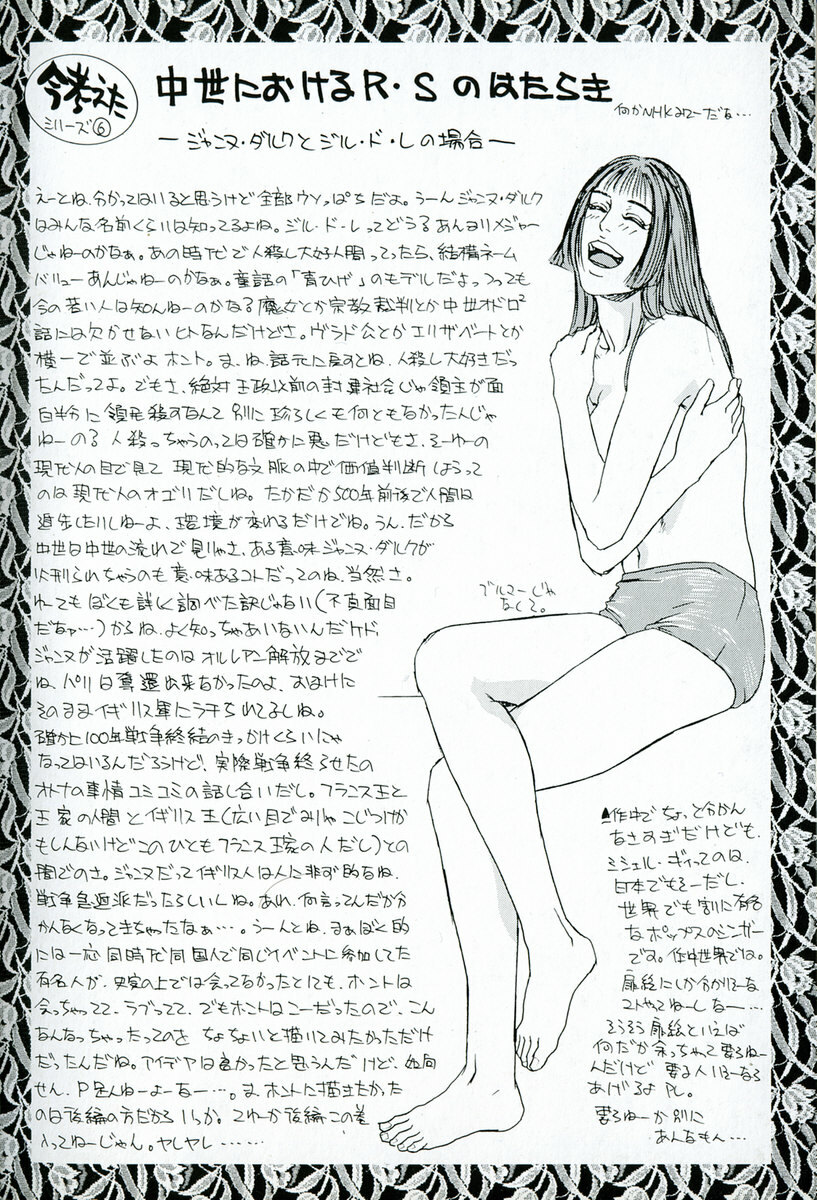 今考えた
シリーズ⑥
中世におけるR・Sのはたらき
何かNHKみてーだな…
ージャンヌ・ダルクとジル・ド・レの場合ー
えーとね、分かってはいると思うけど全部ウソっぱちだよ。うーんジャンヌ・ダルク
はみんな名前くらいは知ってるよね。ジル・ド・レってどうなあんまりメジャー
じゃねーのかなぁ。あの時代で人殺し大好人間ってったら、結構ネーム
バリューあんじゃねーのかなぁ。童話の「青ひげ」のモデルだよっつっても
今の若い人は知んねーのかなぁ魔女とか宗教裁判とか中世オドロ²
話には欠かせないヒトなんだけどさ。ヴラド公とかエリザベートとか
横一で並ぶよホント。ま、ね、話元に戻すとね、人殺し大好きだっ
たんだってよ。でもさ、絶対王政以前の封建社会じゃ領主が面
白半分に領民殺すなんて別に珍らしくも何ともなかったんじゃ
ねーの?人殺っちゃうのっては確かに悪だけどもさ、そーゆーの
現代人の目で見て現代的な文脈の中で価値判断しようって
のは現代人のオゴリだしね。たかだか500年前後で人間は
進歩したりしねーよ、環境が変わるだけでね。うん、だから
中世は中世の流れで見りゃさ、ある意味ジャンヌ・ダルクが
火刑られちゃうのも意味あるコトだってのね、当然さ。
わーてもぼくも詳しく調べた訳じゃない(不真面目
だなァ…)からね、よく知っちゃあいないんだケド
ジャンヌが活躍したのはオルレアン解放までで
ね、パリは奪還出来なかったのよ、おまけに
そのままイギリス軍にラチられてるしね。
確かに100年戦争終結のきっかけくらいにゃ
なってはいるんだろうけど、実際戦争終らせたの
オトナの事情コミコミの話し合いだし。フランス王と
王家の人間とイギリス王(広い目でみりゃこじつけか
もしんないけどこのひともフランス王家の人だし)との
間でのさ。ジャンヌだってイギリス人は人に非ず的なね、
戦争急進派だったらしいしね。あれ、何言ってんだか分
かんなくなってきちゃったなぁ…。うーんとね、まぁぼく的
には一応同時代同国人で同じイベントに参加してた
有名人が、史実の上では会ってなかったとにも、ホントは
会っちゃってて、ラブってて、でもホントはこーだったので、こん
なんなっちゃったってのを ちょちょいと描いてみたかっただけ
だったんだね。アイデアは良かったと思うんだけど、如何
せん、P足んねーよーなー…。ま、ホントに描きたかった
のは後編の方だからいっか。てゆーか後編この巻
入ってねーじゃん。ヤレヤレ……
ブルマーじゃ
なくて。
▲作中でちょっと分かん
なさすぎだけども、
ミシェル・ギィってのは、
日本でもそーだし、
世界でも割に有名
なポップスのシンガー
です。作中世界では。
扉絵にしか分かりそーな
コトやってねーしなー…
そうそう扉絵といえば
何だか余っちゃって要らねー
んだけど 要る人いそーなら
あげるよPL。
要らねーか別に
あんなもん…